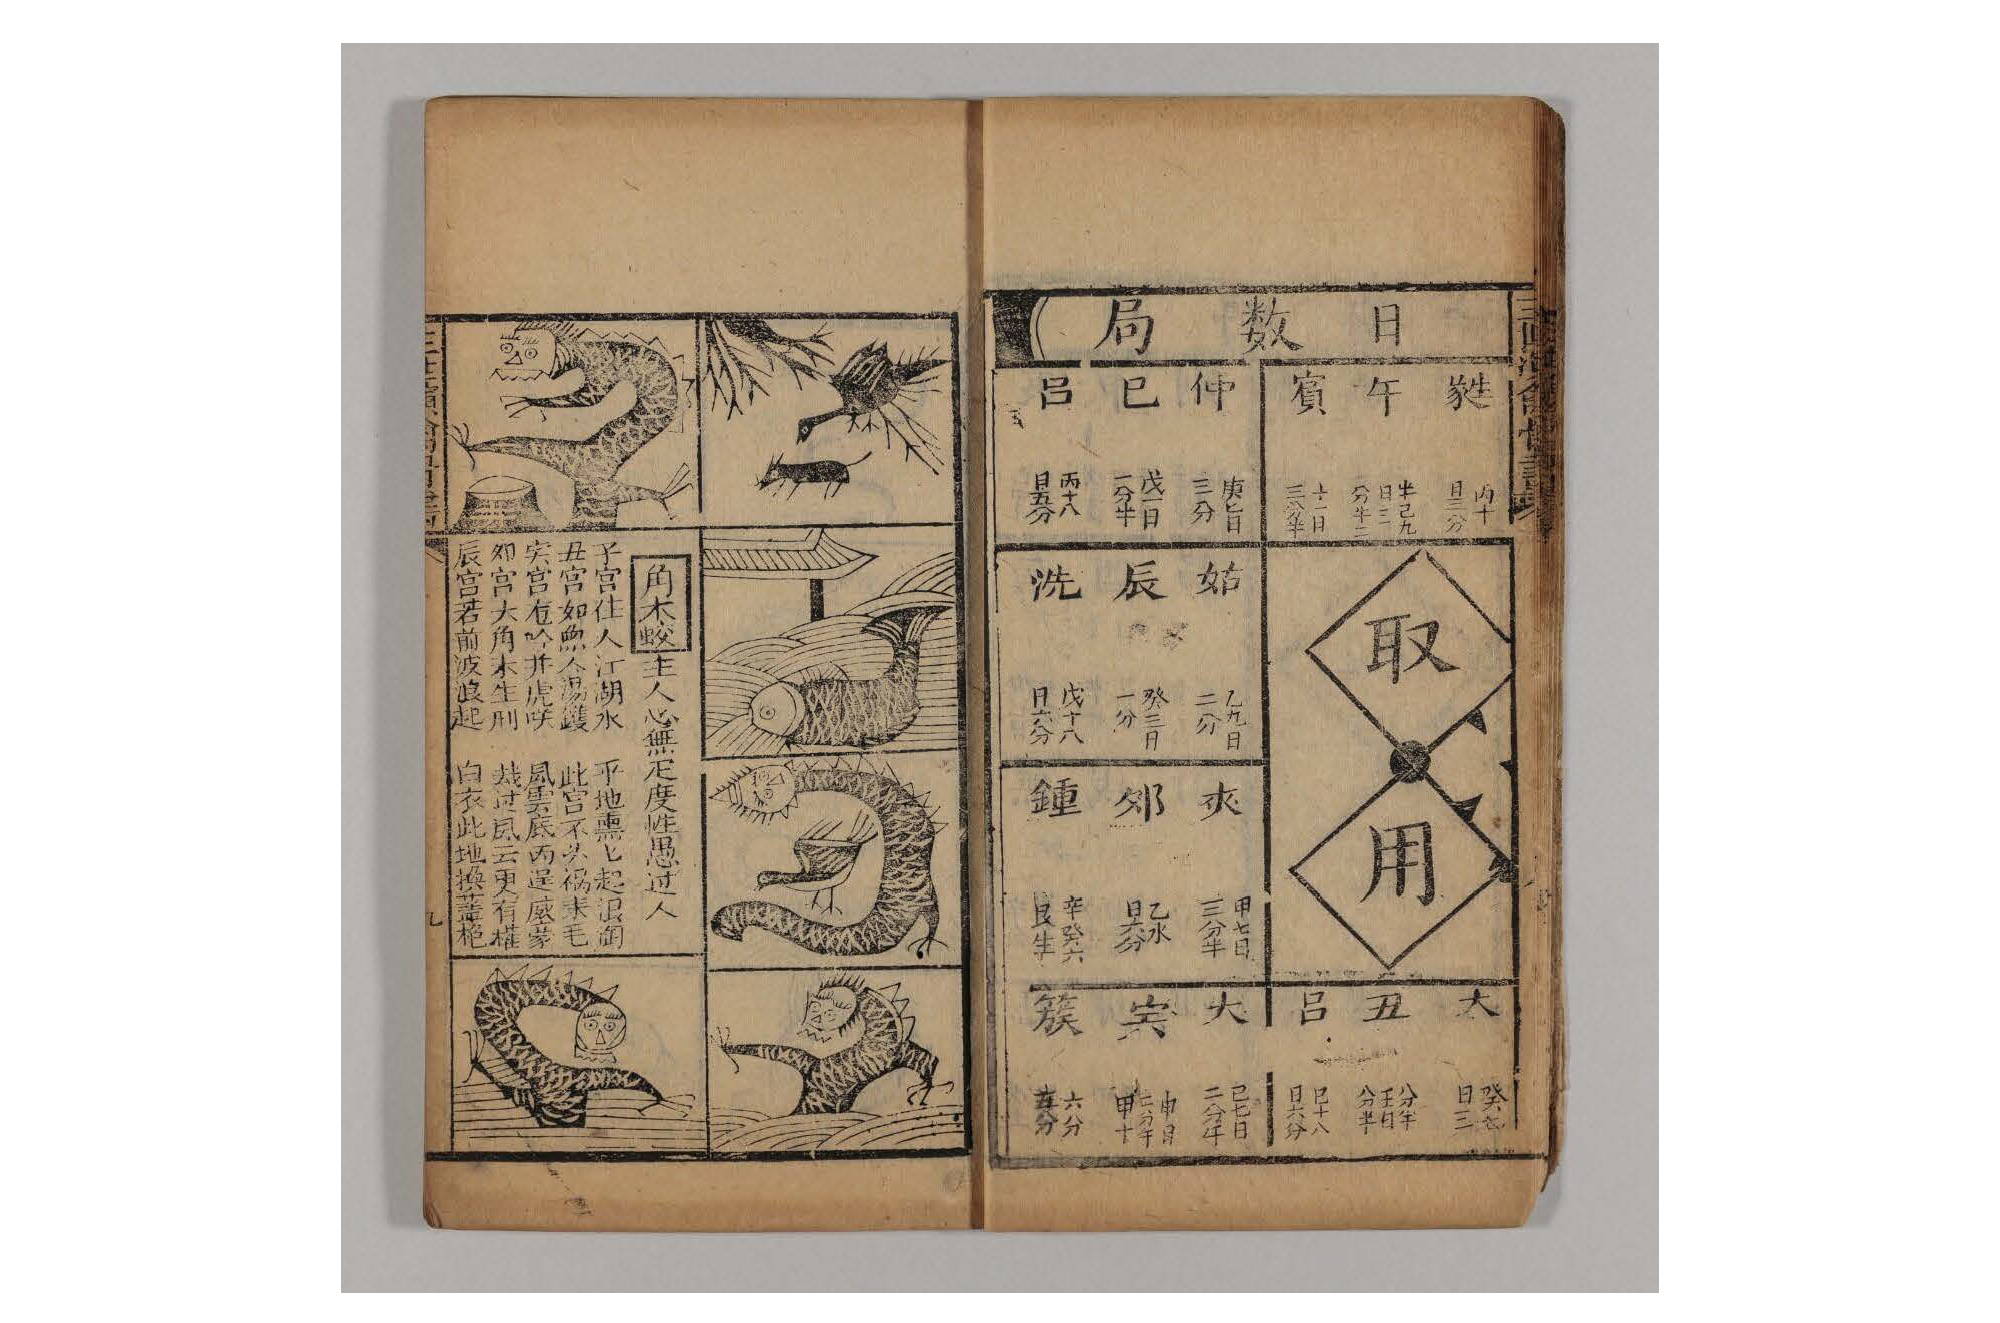 日數局
蕤午賓
丙十
日三分
半己九
日二
十一日
三分半
仲巳呂
庚旨
三分
戊一日
一分半
丙十八
日五分
取用
姑辰洗
乙九日
二分
癸三日
一分
戊十八
日六分
夾卯鍾
甲七日
三分半
乙水
日六分
辛癸六
艮生
太丑呂
癸七
日三
分半
壬日
分半
巳十八
日六分
大寅簇
己七日
二分午
申日
二分午
甲十
六分
五分
角木蛟
主人心無定度性愚过人
子宮住人江湖水 平地熏七起浪濶
丑宮如魚入湯鑊 此宮不为祸来毛
寅宮龙吟并虎咲 風雲底丙逞威蒙
卯宮大角木生刑 哉过風云更有權
辰宮若前波浪起 白衣此地換蓝袍
九